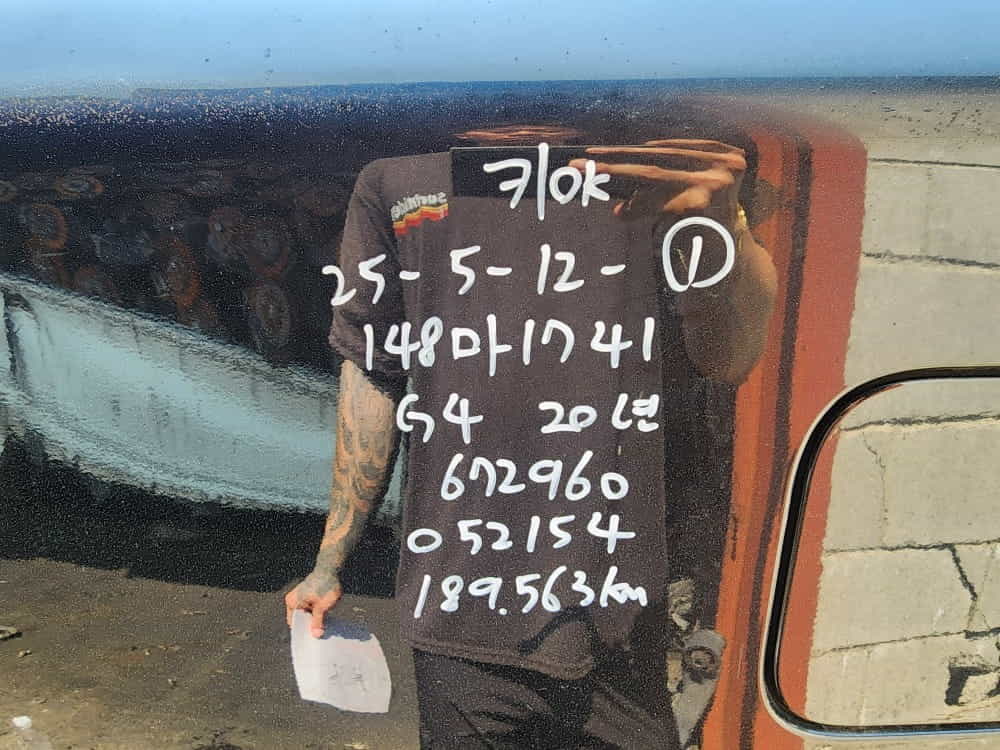 키ok
25-5-12-①
148마1741
G4 20년
672960
052154
189.563km